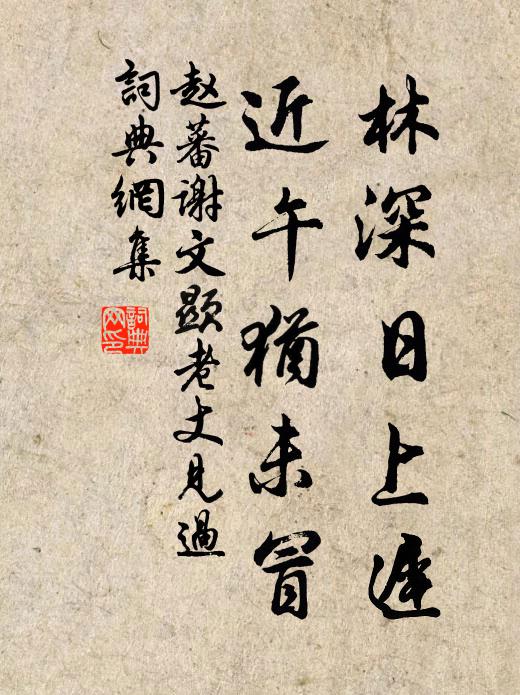 林深日上遲
近午猶未冒
赵蕃谢文顯老丈見過
詞典網集
詞典網印